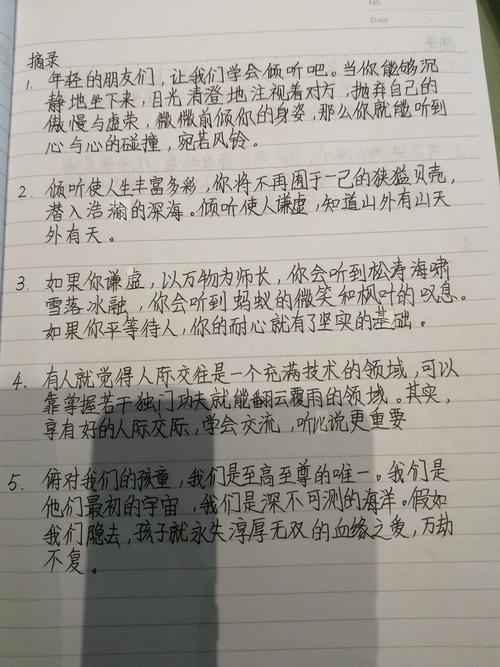 No.
Date
摘录
1. 年轻的朋友们，让我们学会倾听吧。当你能够沉
静地坐下来，目光清澄地注视着对方，抛弃自己的
傲慢与虚荣，微微前倾你的身姿，那么你就能听到
心与心的碰撞，宛若风铃。
2. 倾听使人生丰富多彩，你将不再囿于一己的狭隘贝壳，
潜入浩瀚的深海。倾听使人谦虚，知道山外有山天
外有天。
3. 如果你谦虚，以万物为师长，你会听到松涛海啸
雪落冰融，你会听到蚂蚁的微笑和枫叶的叹息。
如果你平等待人，你的耐心就有了坚实的基础。
4. 有人就觉得人际交往是一个充满技术的领域，可以
靠掌握若干独门功夫就能翻云覆雨的领域。其实，
享有好的人际交际，学会交流，听比说更重要
5. 俯对我们的孩童，我们是至高至尊的唯一。我们是
他们最初的宇宙，我们是深不可测的海洋。假如
我们隐去，孩子就永失淳厚无双的血缘之爱，万劫
不复。